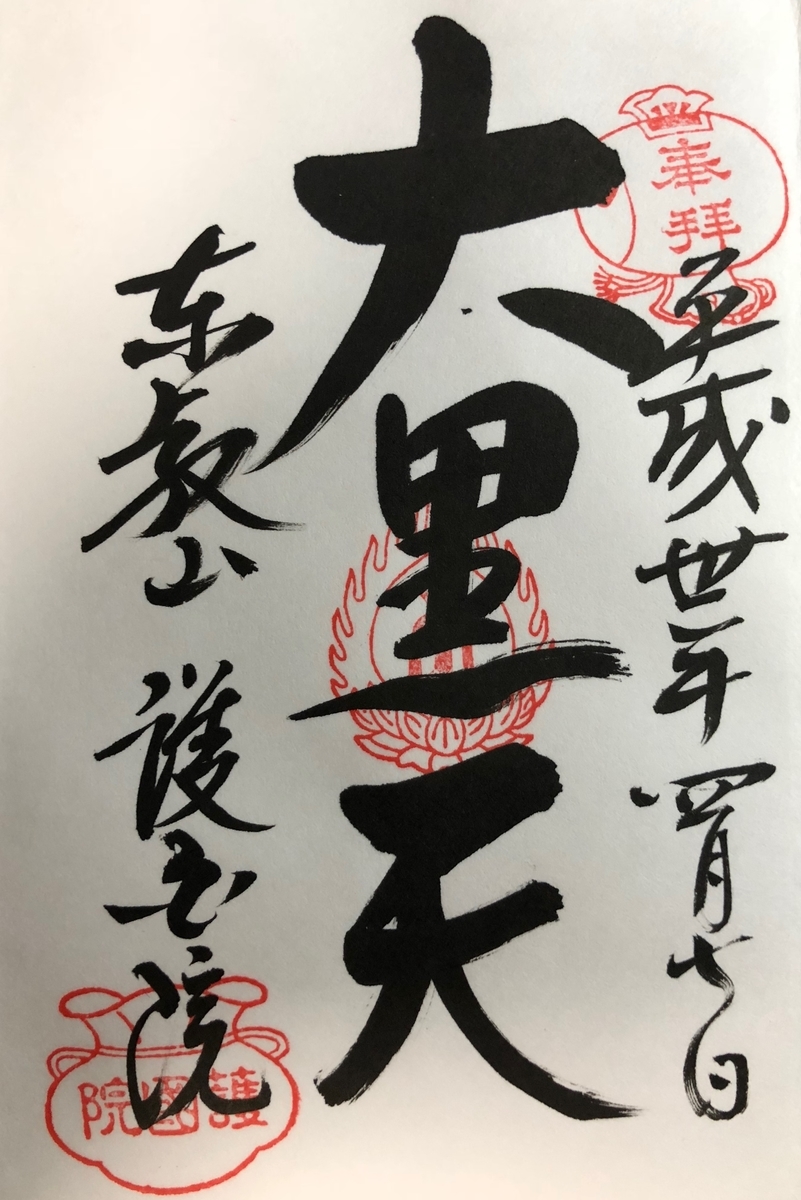 奉拝
平成丗一年四月七日
大黒天
東叡山 護国院
護國院